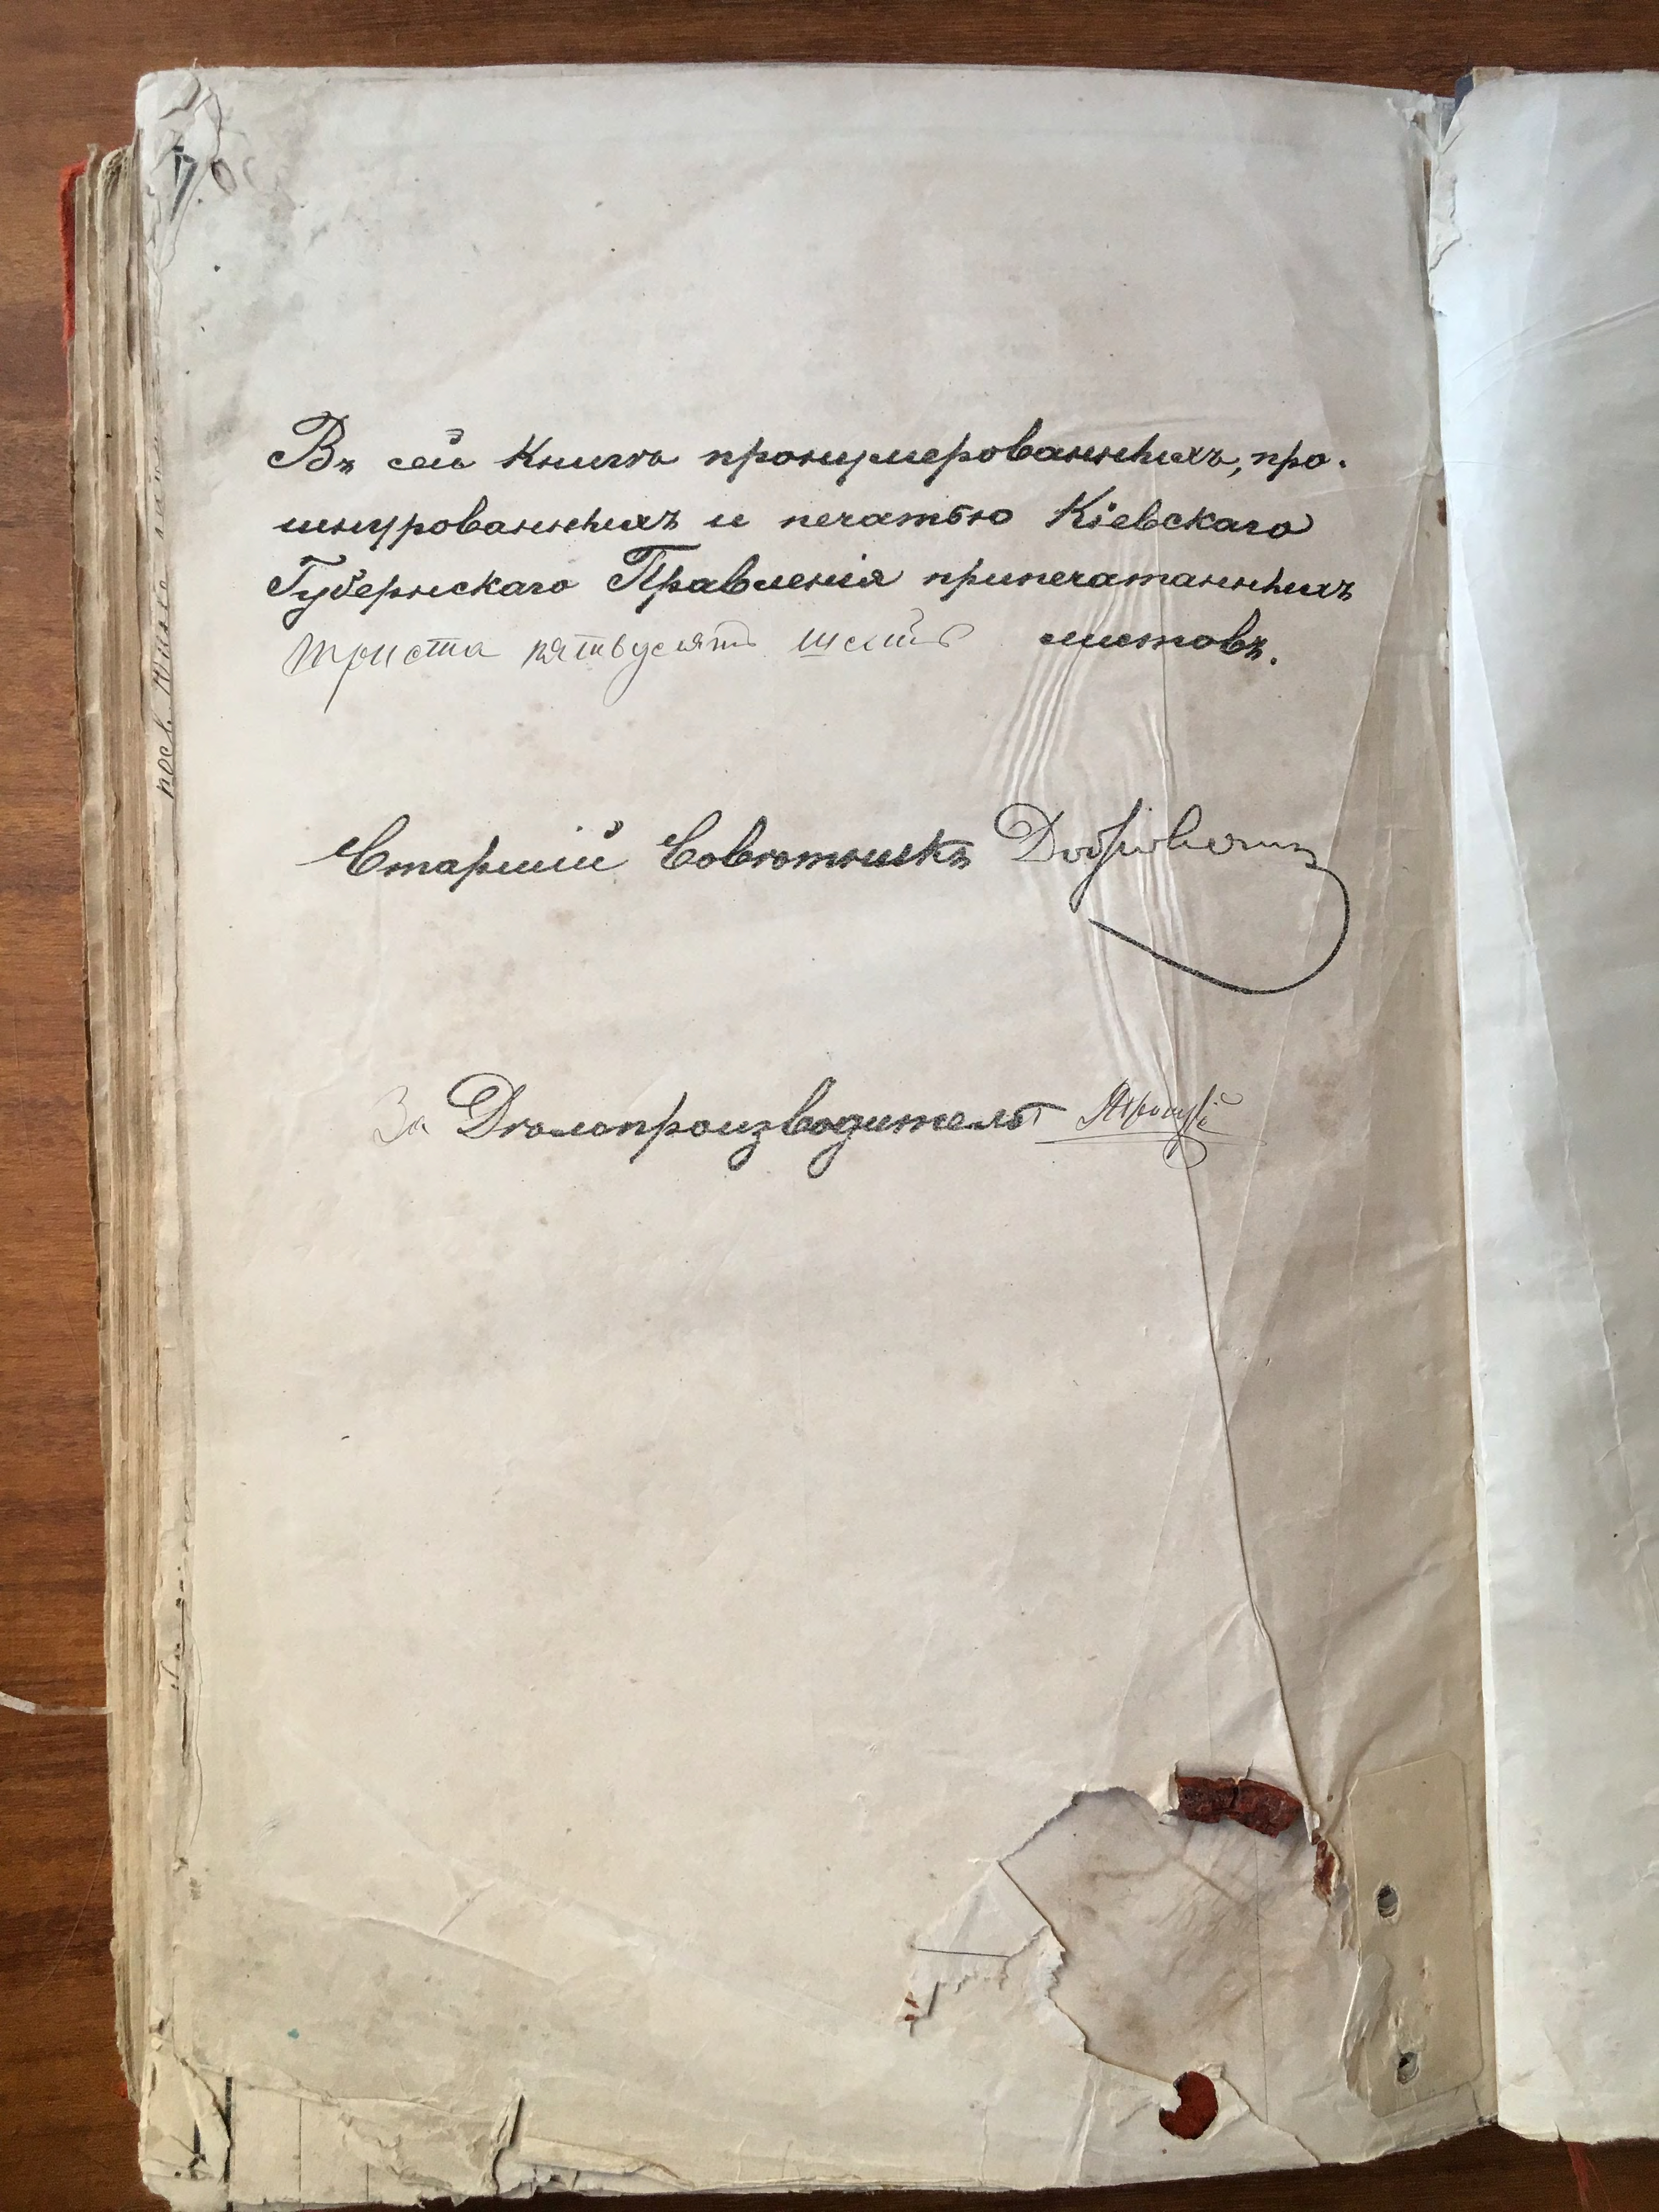 Въ сей книгѣ пронумерованныхъ, про-
шнурованныхъ и печатью Кіевскаго
Губернскаго Правленія припечатанныхъ
триста пятьдесятъ шесть листовъ.
Старшій Совѣтникъ
За Дѣлопроизводителя